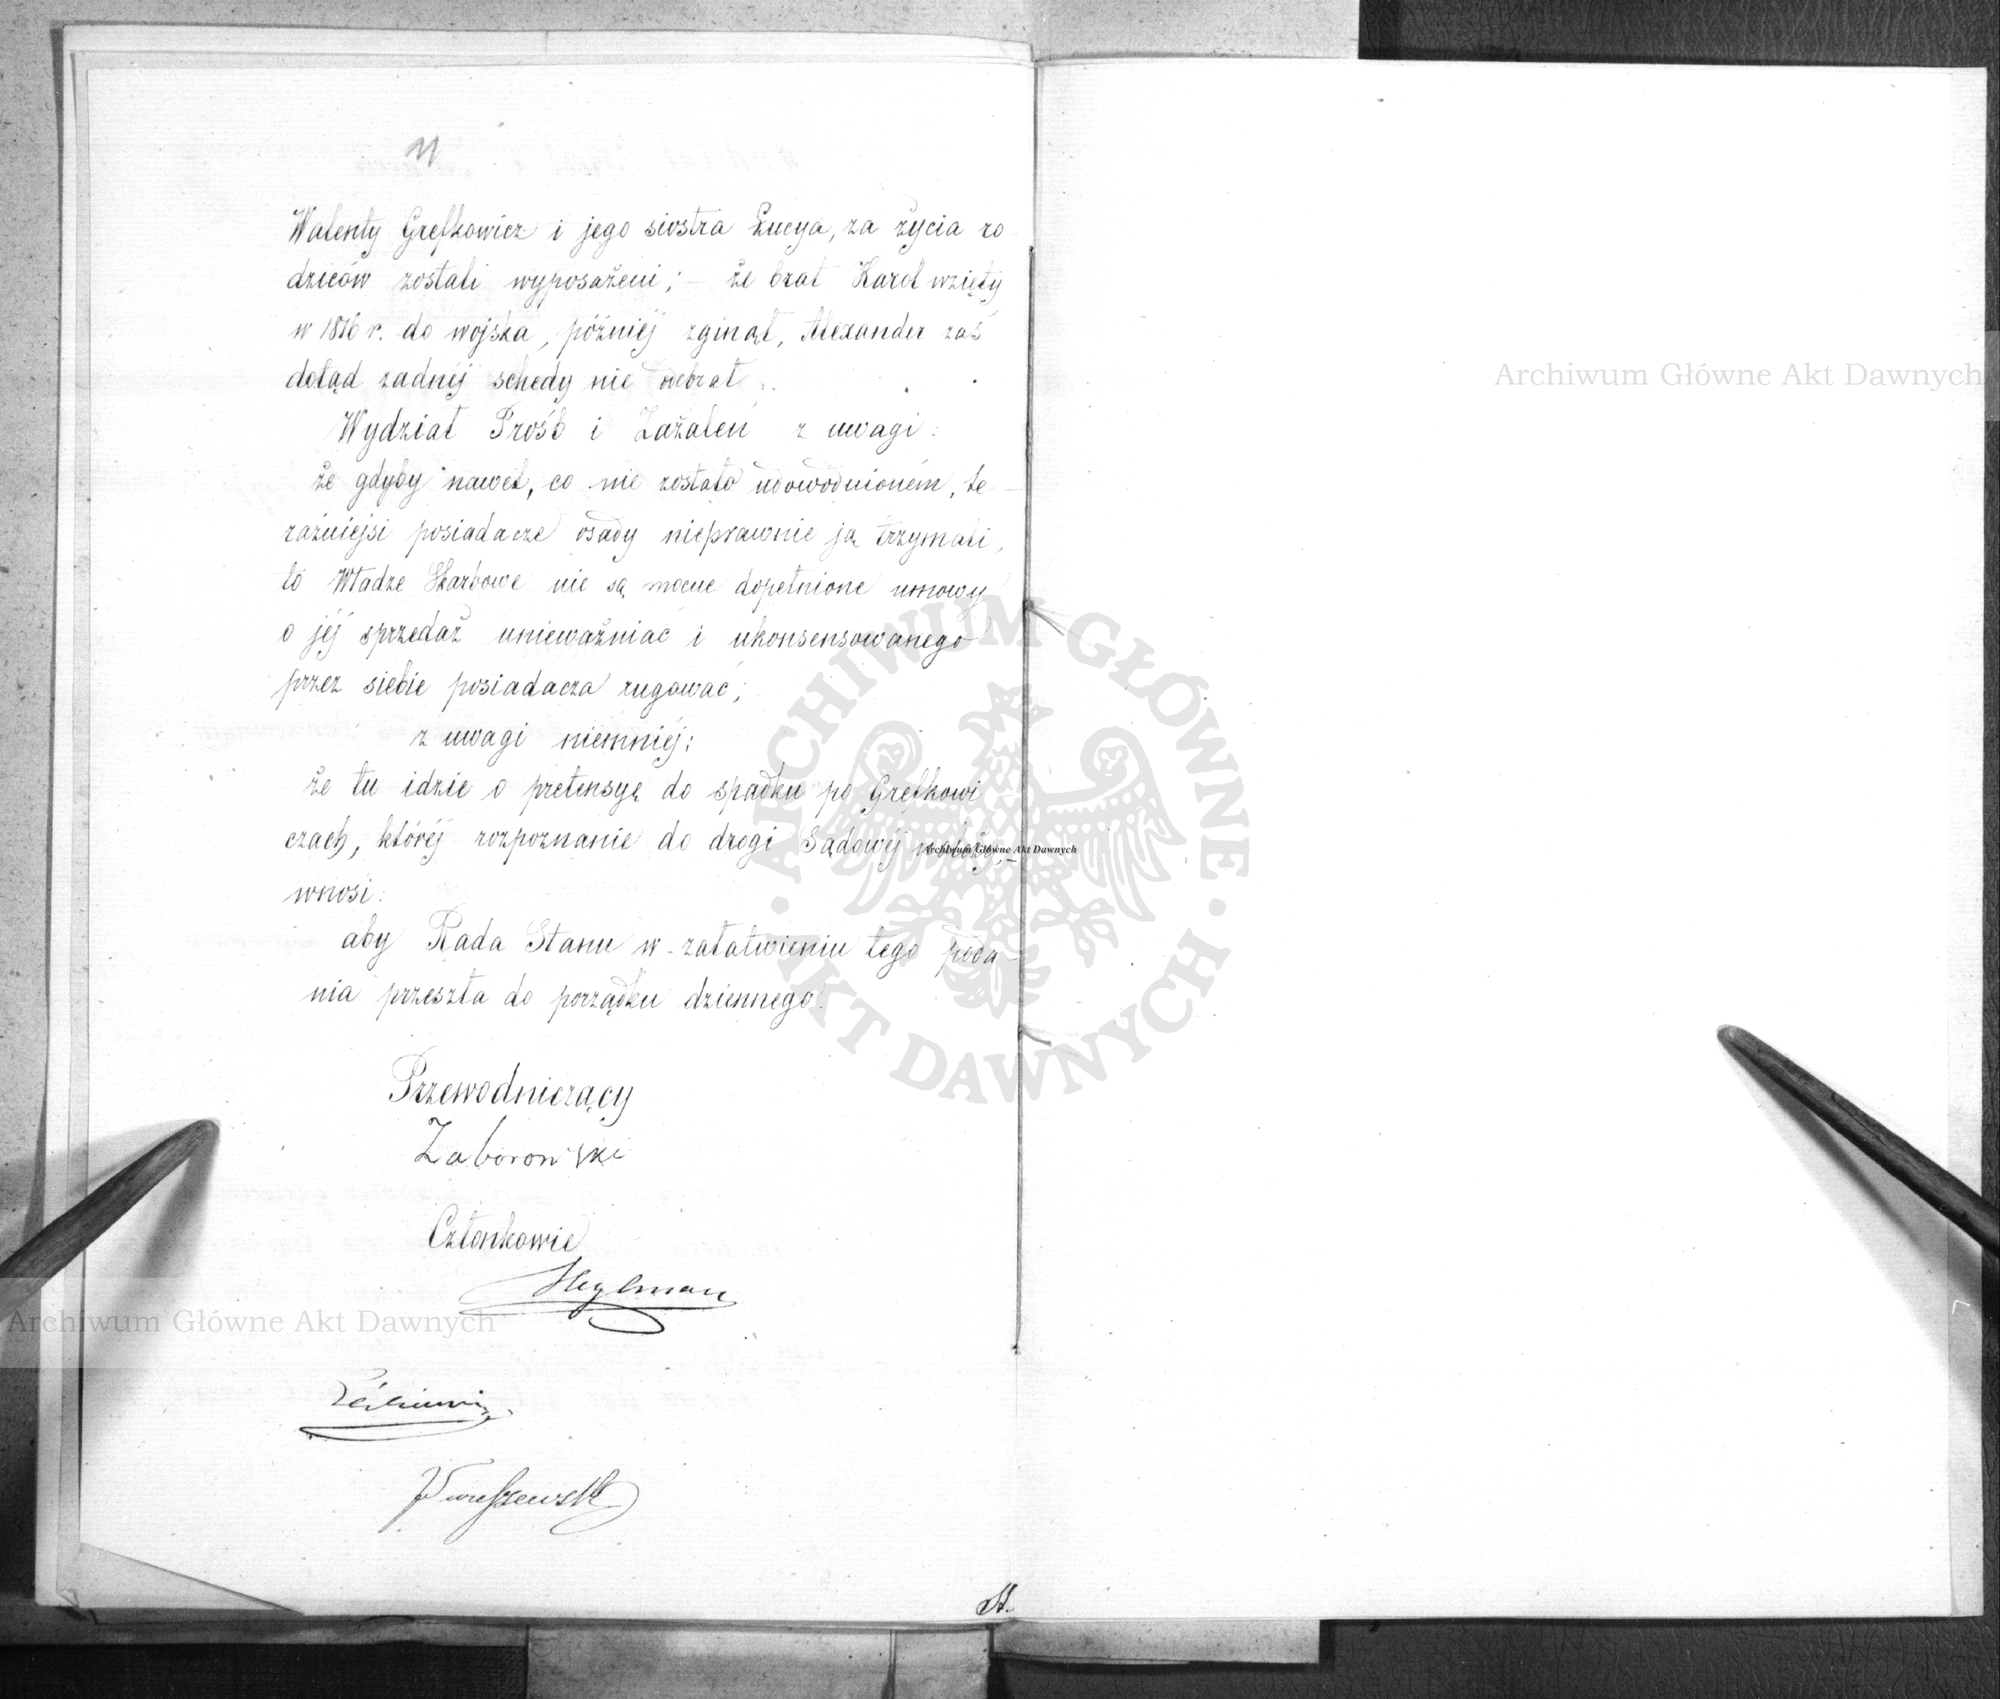 Walenty Grefkowicz i jego siostra Łucya, za życia ro
dziców zostali wyposażeni; – że brat Karol wzięty
w 1816 r. do wojska, późniéj zginął, Alexander zaś
dotąd żadnéj schedy nie odebrał.
Wydział Próśb i Zażaleń z uwagi:
że gdyby nawet, co nie zostało udowodnioném, te
raźniejsi posiadacze osady nieprawnie ją trzymali,
to Władze Skarbowe nie są mocne dopełnione umowy
o jéj sprzedaż unieważniać i ukonsensowanego
przez siebie posiadacza rugować;
z uwagi niemniéj:
że tu idzie o pretensyę do spadku po Grefkowi
czach, któréj rozpoznanie do drogi Sądowéj należy, –
wnosi:
aby Rada Stanu w załatwieniu tego poda
nia przeszła do porządku dziennego.
Przewodniczący
Zaborowski
Członkowie
Heylman
Archiwum Główne Akt Dawnych
Archiwum Główne Akt Dawnych
Archiwum Główne Akt Dawnych
ARCHIWUM GŁÓWNE
AKT DAWNYCH